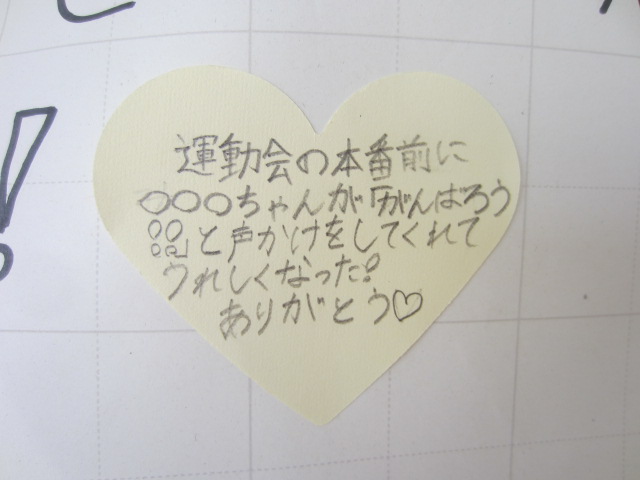 運動会の本番前に
○○○ちゃんが「がんばろう
!!」と声かけをしてくれて
うれしくなった!
ありがとう♡